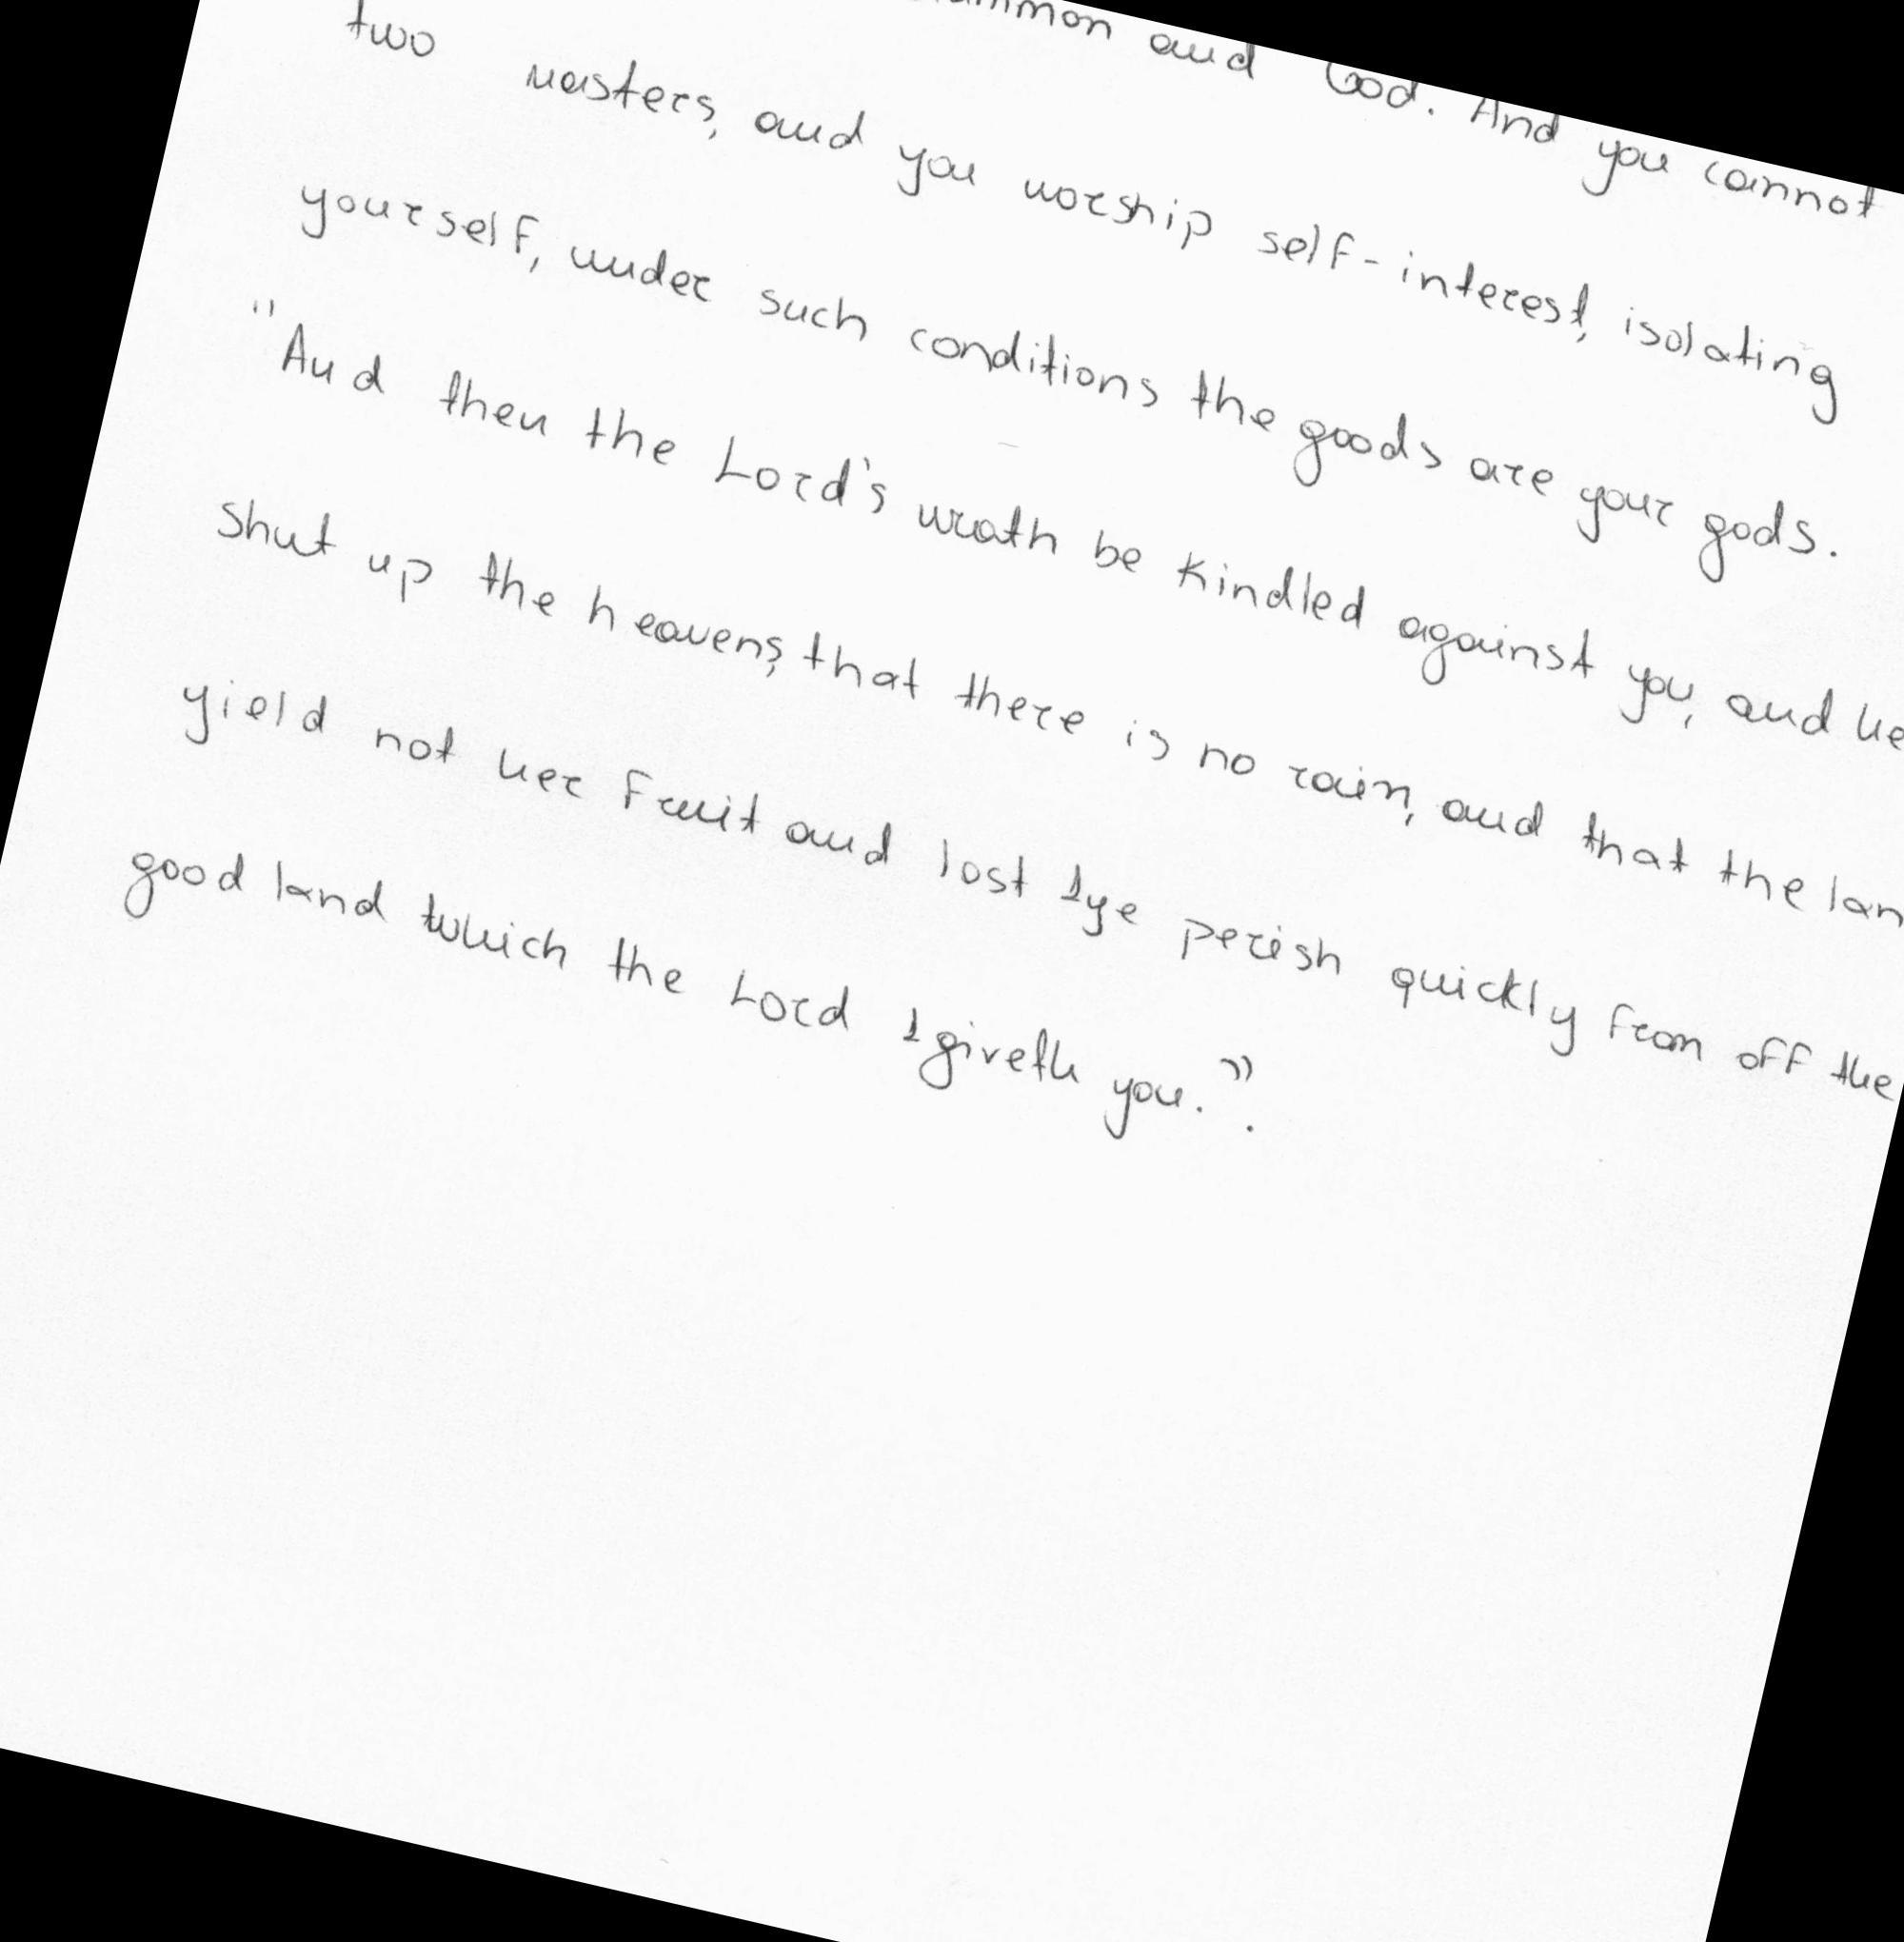 and God. And you cannot
two masters, and you worship self-interest, isolating
yourself, under such conditions the goods are your gods.
"And then the Lord's wrath be kindled against you, and he
shut up the heavens, that there is no rain, and that the lan
yield not her fruit and lost 1ye perish quickly from off the
good land twhich the Lord 1giveth you.".